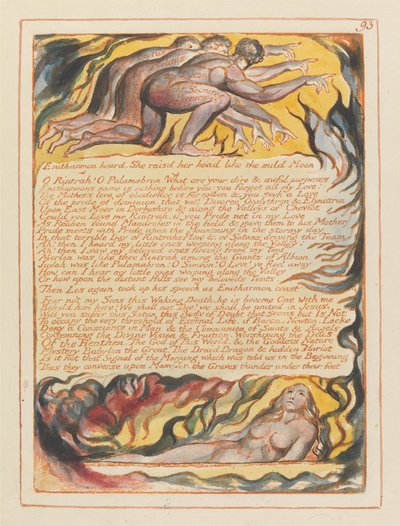 93
Anytus
Melitus
& Lycon
thought Socrates
a Very Pernicious
Enitharmon heard. She raisd her head like the mild Moon
O Rintrah! O Palamabron! What are your dire & awful purposes
Enitharmons name is nothing before you: you forget all my Love!
The Mothers love of obedience is forgotten & you seek a Love
Of the pride of dominion, that will Divorce Ocalythron & Elynittria
Upon East Moor in Derbyshire & along the Valleys of Cheviot
Could you Love me Rintrah, if you Pride not in my Love
As Reuben found Mandrakes in the field & gave them to his Mother
Pride meets with Pride upon the Mountains in the stormy day
In that terrible Day of Rintrahs Plow & of Satans driving the Team.
Ah! then I heard my little ones weeping along the Valley!
Ah! then I saw my beloved ones fleeing from my Tent
Merlin was like thee Rintrah among the Giants of Albion
Judah was like Palamabron: O Simeon! O Levi! ye fled away
How can I hear my little ones weeping along the Valley
Or how upon the distant Hills see my beloveds Tents
Then Los again took up his speech as Enitharmon ceast
Fear not my Sons this Waking Death. he is become One with me
Behold him here! We shall not Die! we shall be united in Jesus.
Will you suffer this Satan this Body of Doubt that Seems but Is Not
To occupy the very threshold of Eternal Life. if Bacon, Newton, Locke,
Deny a Conscience in Man & the Communion of Saints & Angels
Contemning the Divine Vision & Fruition, Worshiping the Deus
Of the Heathen, The God of This World, & the Goddess Nature
Mystery Babylon the Great, The Druid Dragon & hidden Harlot
Is it not that Signal of the Morning which was told us in the Beginning
Thus they converse upon Mam-Tor. the Graves thunder under their feet